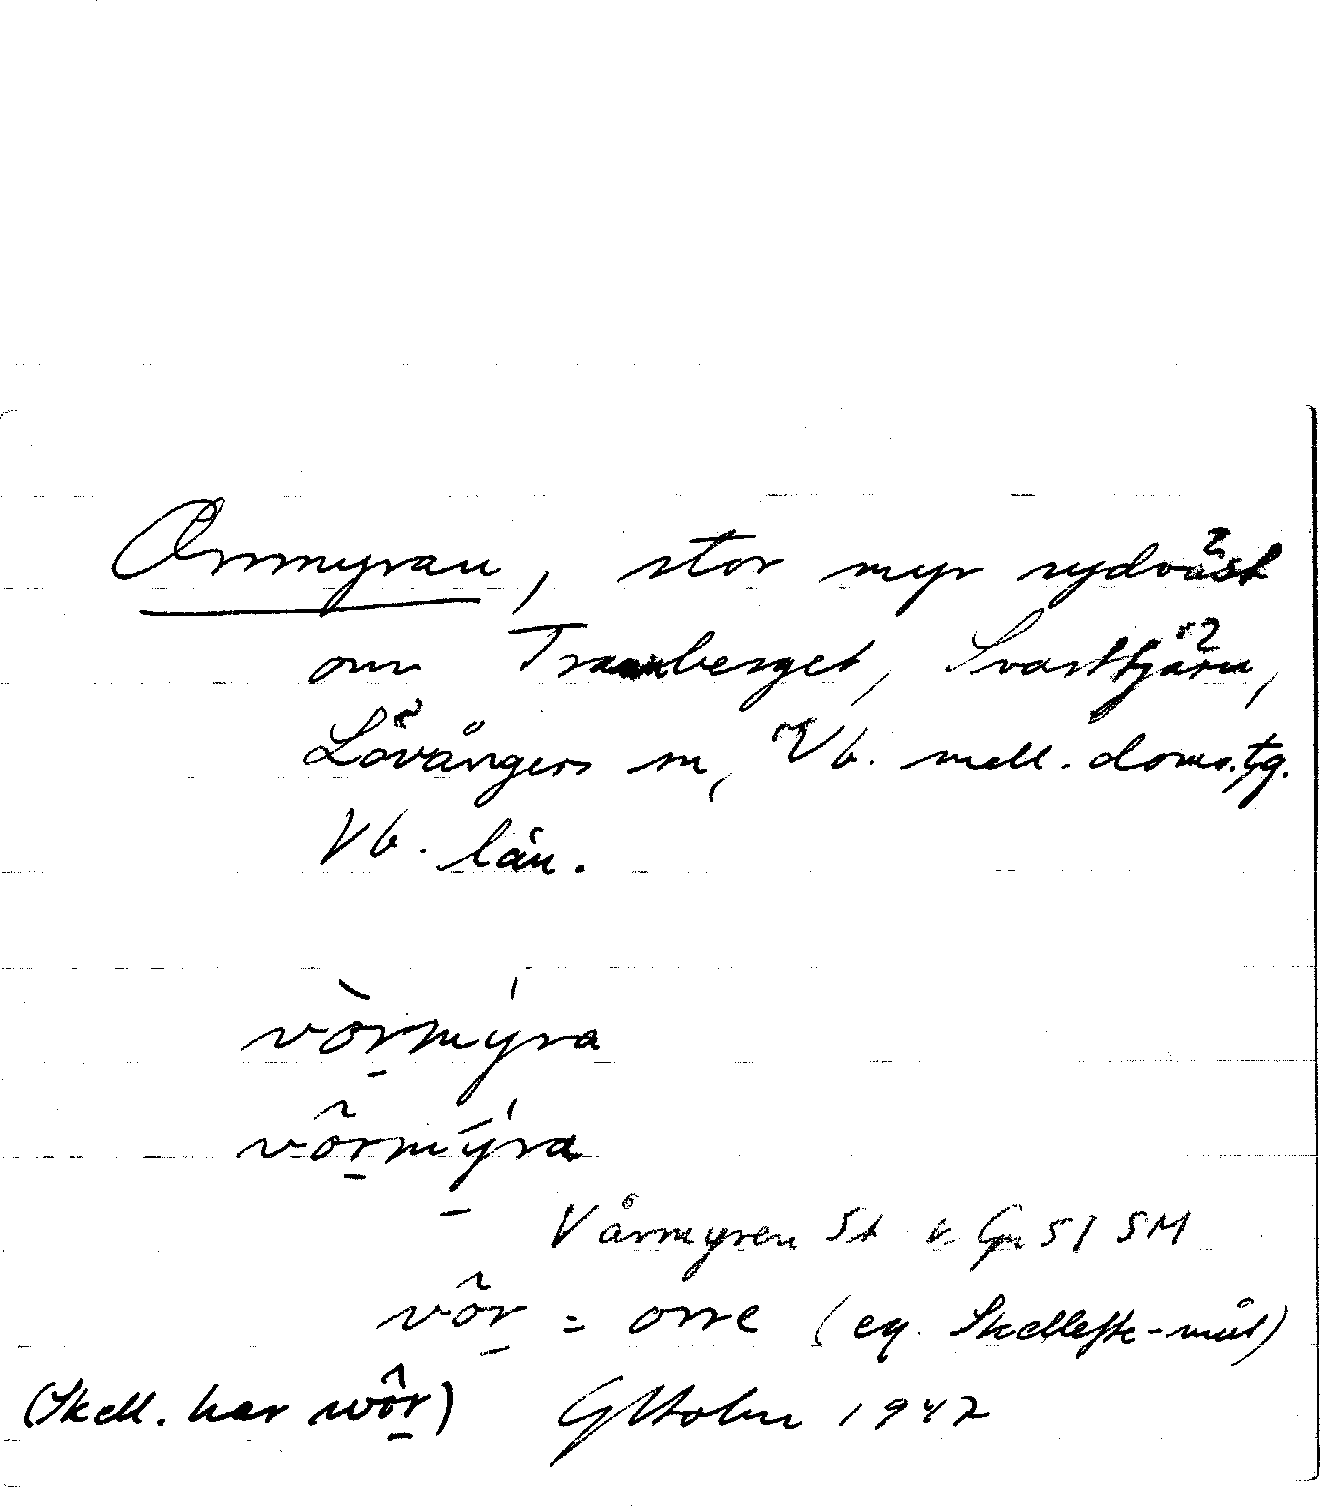 Orrmyran, stor myr sydväst
om Tranberget, Svarttjärn,
Lövångers sn, Vb. mell. doms.tg.
Vb. län.
vòrmýra
võrmýra
Vårmyren St v Gn 51 SM
võr = orre (eg. Skellefte-mål)
(Skell. har wôr) GHolm 1942